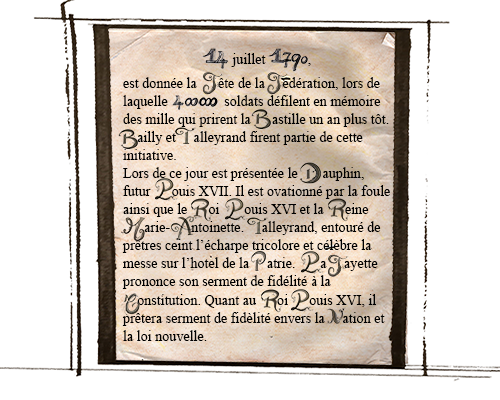 14 juillet 1790,
est donnée la Fête de la Fédération, lors de
laquelle 400000 soldats défilent en mémoire
des mille qui prirent la Bastille un an plus tôt.
Bailly et Talleyrand firent partie de cette
initiative.
Lors de ce jour est présentée le Dauphin,
futur Louis XVII. Il est ovationné par la foule
ainsi que le Roi Louis XVI et la Reine
Marie-Antoinette. Talleyrand, entouré de
prêtres ceint l'écharpe tricolore et célèbre la
messe sur l'hotel de la Patrie. La Fayette
prononce son serment de fidélité à la
Constitution. Quant au Roi Louis XVI, il
prêtera serment de fidèlité envers la Nation et
la loi nouvelle.